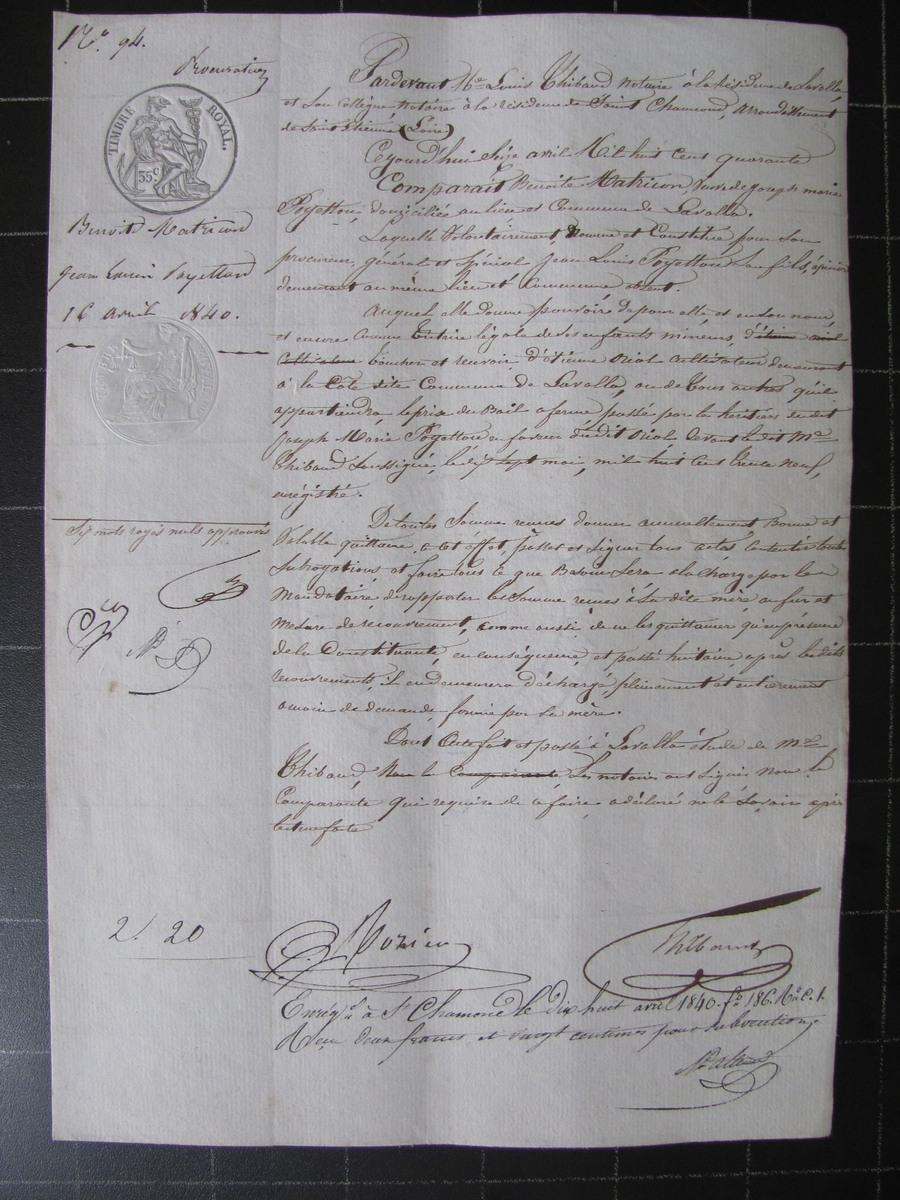 N.° 94.
Procuration
TIMBRE ROYAL.
35 c
Benoite Matricon
16 avril 1840.
Six mots rayés nuls approuvés
Pardevant Me Louis Thibaud Notaire à la résidence de Lavalla,
et son collègue Notaire à la résidence de Saint Chamond, arrondissement
de Saint Etienne (Loire)
Cejourd'hui seize avril Mil huit cent quarante
Comparait Benoite Matricon, veuve de Joseph marie
Poyetton, domiciliée au lieu et Commune de Lavalla.
Laquelle Volontairement, Nomme et Constitue pour Son
procureur, général et spécial Jean Louis Poyetton Son fils,
demeurant au même lieu et commune
Auquel elle donne pouvoir de pour elle, et en son nom,
et encore comme tutrice légale de ses enfants mineurs, d'étienne
cultivateur toucher et recevoir d'étienne Oriol cultivateur demeurant
à la Côte dite Commune de Lavalla, ou de tous autres qu'il
appartiendra, le prix du Bail a ferme passé par les héritiers dudit
Joseph Marie Poyetton en faveur dudit Oriol devant ledit Me
Thibaud Soussigné, le dix sept mai, mil huit cent trente neuf,
enrégistré.
De toutes Somme reçues donner annuellement Bonne et
Valable quittance, a cet effet, passer et Signer tous actes, consentir toutes
Subrogations et faire tous ce que Besoin Sera a la charge par le
Mandataire, de rapporter les Somme reçues à Sa dite mère, au fur et
Mesure de recouvrement, comme aussi de ne les quittancer qu'en presence
de la Constituante, en conséquence, et passé huitaine, après lesdits
recouvrements, il en demeurera déchargé, pleinement et entierement
a moin de demande formée par la mère.
Dont Acte fait et passé à Lavalla étude de Me
Thibaud, Non la Comparante Les notaires ont Signés Non la
Comparante qui requise de ce faire, a déclaré ne le Savoir après
lecture faite
2/. 20
Thibaud
Enreg.é à St Chamond le dix huit avril 1840. f.° 186. R.° C. 1.
Reçu deux francs et vingt centimes pour subvention.